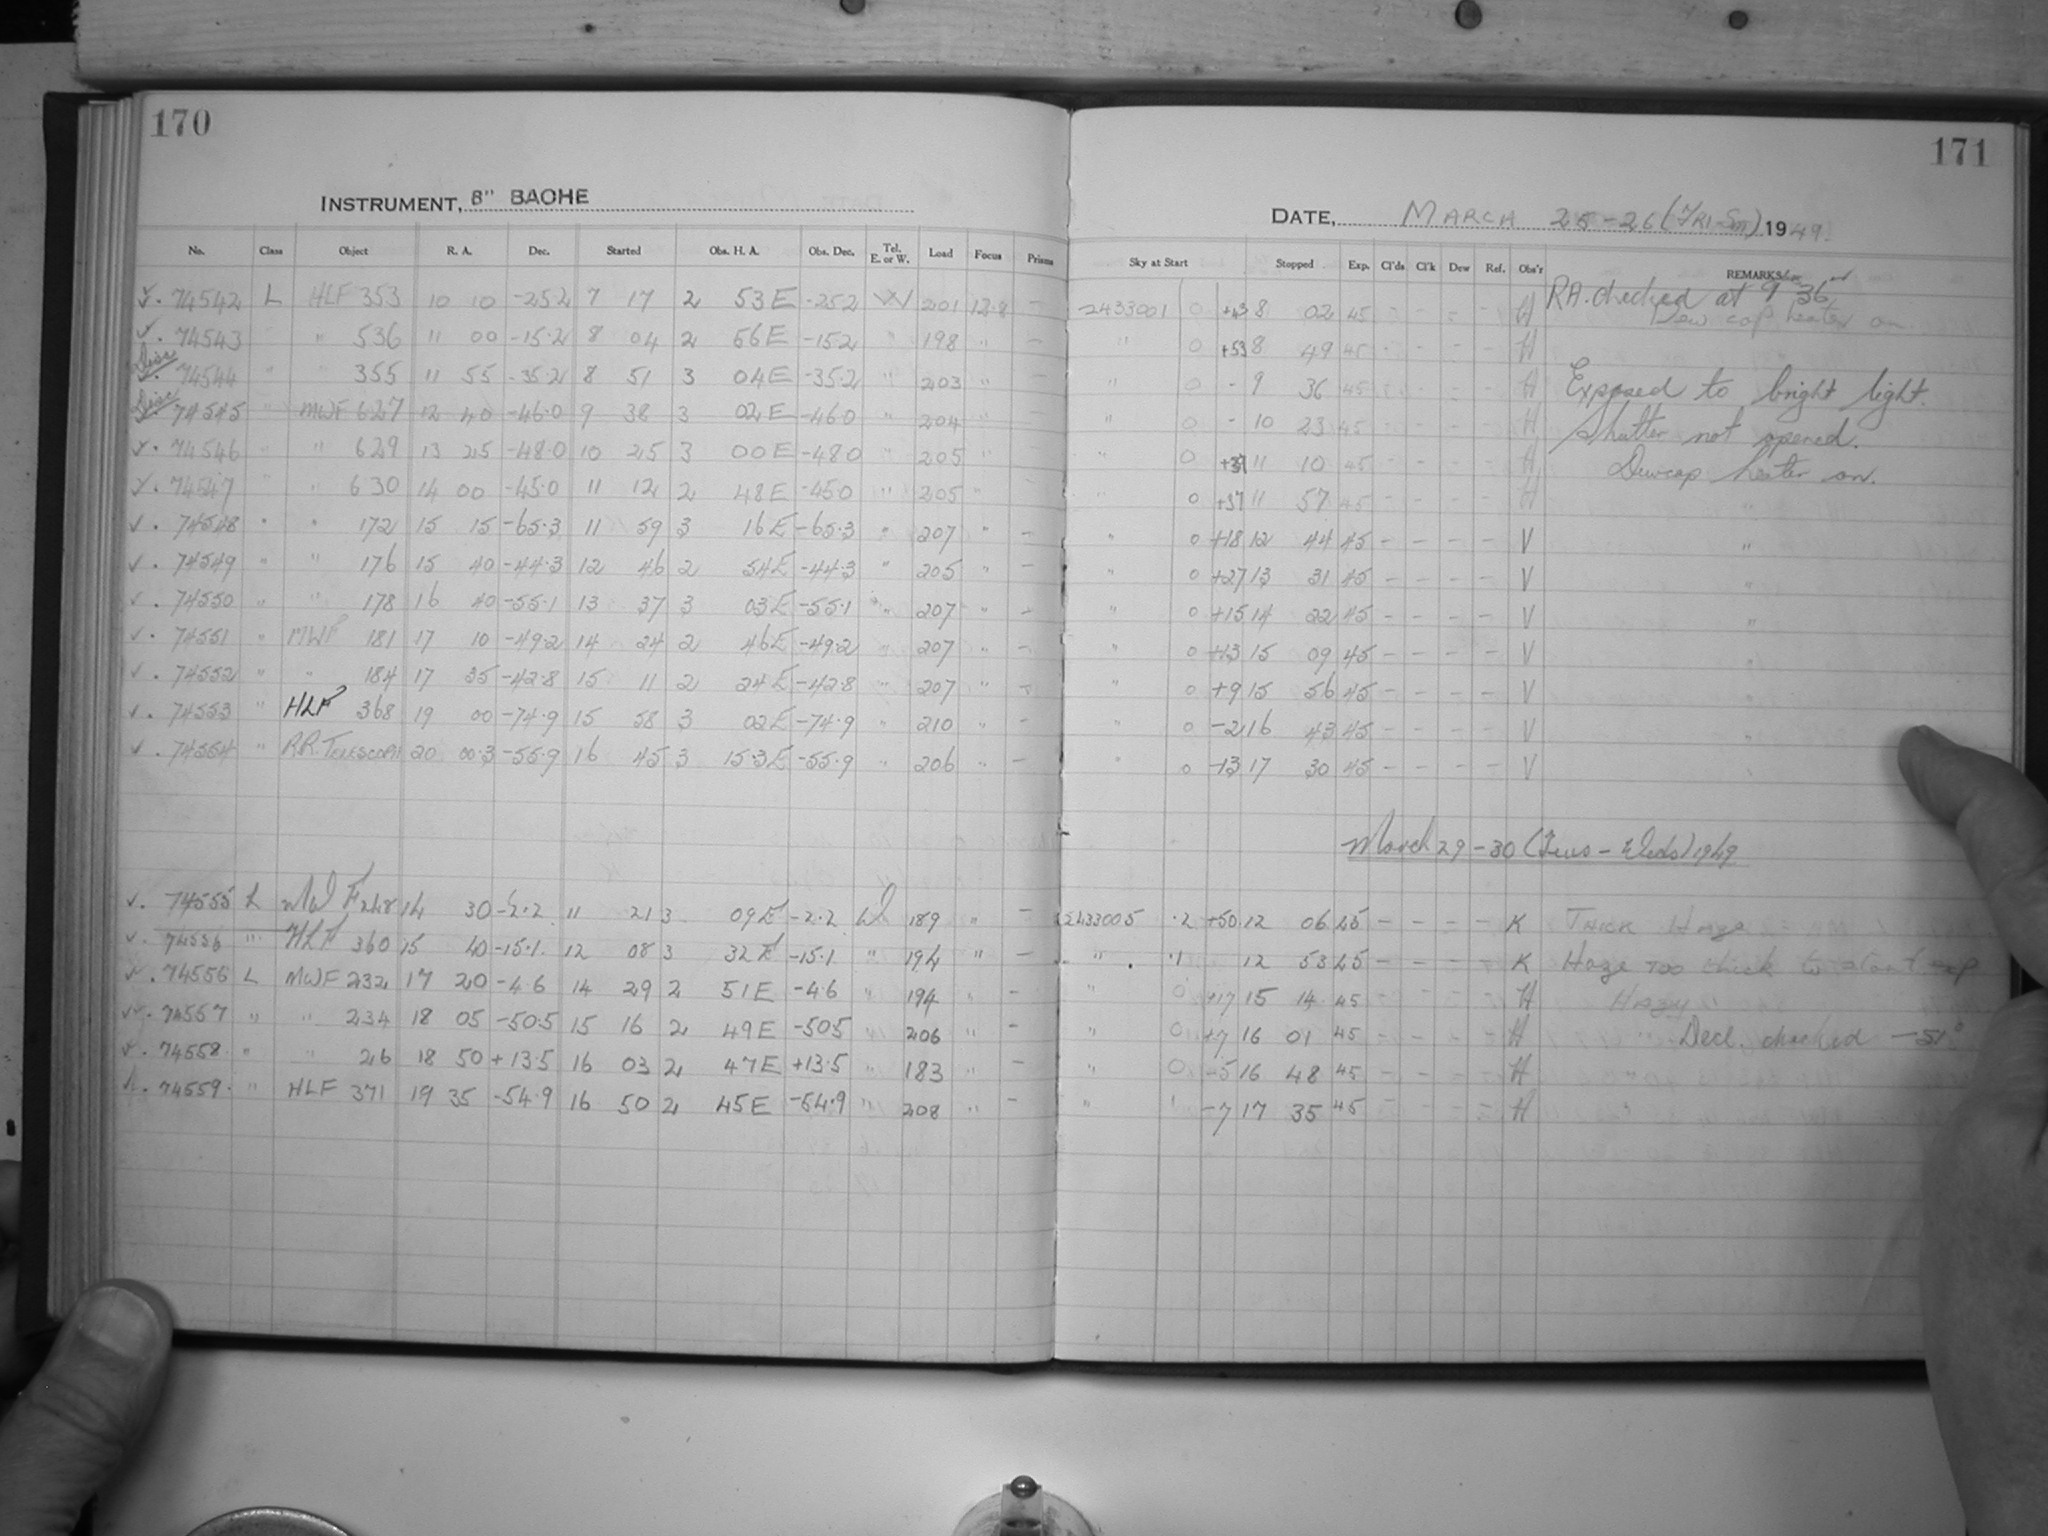 170
INSTRUMENT, 8" BAOHE
No. Class Object R. A. Dec. Started Obs. H. A. Obs. Dec. Tel. E. or W. Load Focus Prisms
v. 74542 L HLF 353 10 10 -25.2 7 17 2 53 E -25.2 W 201 13.8 -
v. 74543 " 536 11 00 -15.2 8 04 2 56 E -15.2 " 198 " -
v. 74544 " " 355 11 55 -35.2 8 51 3 04 E -35.2 " 203 " -
74545 " MWF 627 12 40 -46.0 9 38 3 02 E -46.0 " 204 "
v. 74546 " " 629 13 25 -48.0 10 25 3 00 E -48.0 " 205
v. 74547 " " 630 14 00 -45.0 11 12 2 48 E -45.0 " 205 "
v. 74548 " " 172 15 15 -65.3 11 59 3 16 E -65.3 " 207 " -
v. 74549 " " 176 15 40 -44.3 12 46 2 54 E -44.3 " 205 " -
v. 74550 " " 178 16 40 -55.1 13 37 3 03 E -55.1 " 207 " -
v. 74551 " MWF 181 17 10 -49.2 14 24 2 46 E -49.2 " 207 " -
v. 74552 " " 184 17 35 -42.8 15 11 2 24 E -42.8 " 207 " -
v. 74553 " HLF 368 19 00 -74.9 15 58 3 02 E -74.9 " 210 " -
v. 74554 " R.R. TELESCOPII 20 00.3 -55.9 16 45 3 15.3 E -55.9 " 206 " -
v. 74555 L MWF 248 14 30 -2.2 11 21 3 09 E -2.2 W 189 " -
v. 74556 " HLF 360 15 40 -15.1 12 08 3 32 E -15.1 " 194 " -
v. 74556 L MWF 232 17 20 -4.6 14 29 2 51 E -4.6 " 194 " -
v. 74557 " " 234 18 05 -50.5 15 16 2 49 E -50.5 " 206 " -
v. 74558 " " 26 18 50 +13.5 16 03 2 47 E +13.5 " 183 " -
74559 " HLF 371 19 35 -54.9 16 50 2 45 E -54.9 " 208 " -
171
DATE, MARCH 25-26 (FRI-Sat) 1949
Sky at Start Stopped Exp. Cl'ds Cl'k Dew Ref. Obs'r REMARKS
2433001 0 +43 8 02 45 - - - - H RA. checked at 9 36
Dew cap heater on
" 0 +53 8 49 45 - - - - H
" 0 - 9 36 45 - - - - H Exposed to bright light.
" 0 - 10 23 45 - - - - H Shutter not opened.
" 0 11 10 45 - - - - H Dewcap heater on.
" 0 +37 11 57 45 - - - - H "
" 0 +18 12 44 45 - - - - V "
" 0 +27 13 31 45 - - - - V "
" 0 +15 14 22 45 - - - - V "
" 0 +13 15 09 45 - - - - V "
" 0 +9 15 56 45 - - - - V "
" 0 -2 16 43 45 - - - - V "
" 0 -13 17 30 45 - - - - V "
March 29-30 (Tues - Weds) 1949
2433005 .2 +50 12 06 45 - - - - K THICK HAZE
" .1 12 53 45 - - - - K Haze too thick to start exp
" 0 +17 15 14 45 - - - - H HAZY
" 0 +7 16 01 45 - - - - H " Decl. checked -51°
" 0 -5 16 48 45 - - - - H
" ' -7 17 35 45 - - - - H